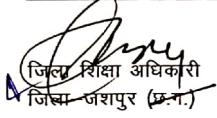 जिला शिक्षा अधिकारी
जिला-जशपुर (छ.ग.)